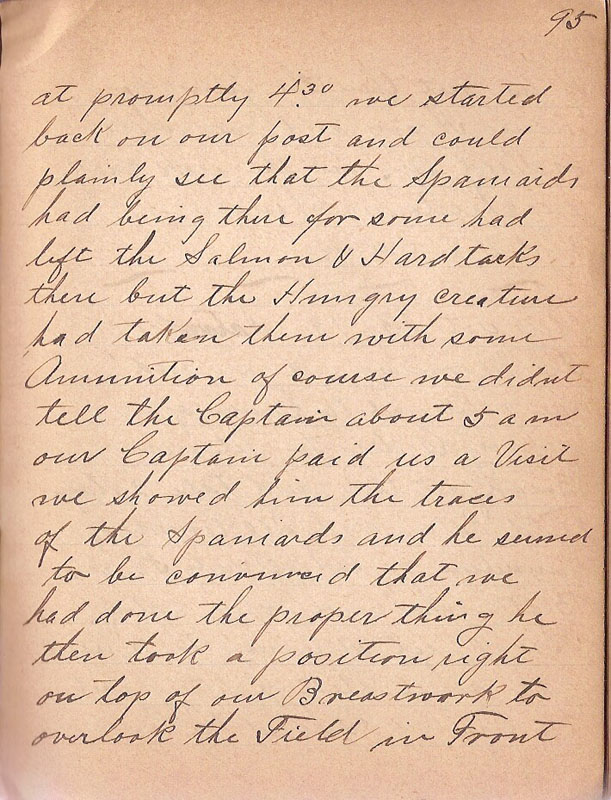 95
at promptly 4.30 we started
back on our post and could
plainly see that the Spaniards
had being there for some had
left the Salmon & Hard tacks
there but the Hungry creature
had taken them with some
Ammunition of course we didnt
tell the Captain about 5 a m
our Captain paid us a Visit
we showed him the traces
of the Spaniards and he seemed
to be convinced that we
had done the proper thing he
then took a position right
on top of our Breastwork to
overlook the Field in Front